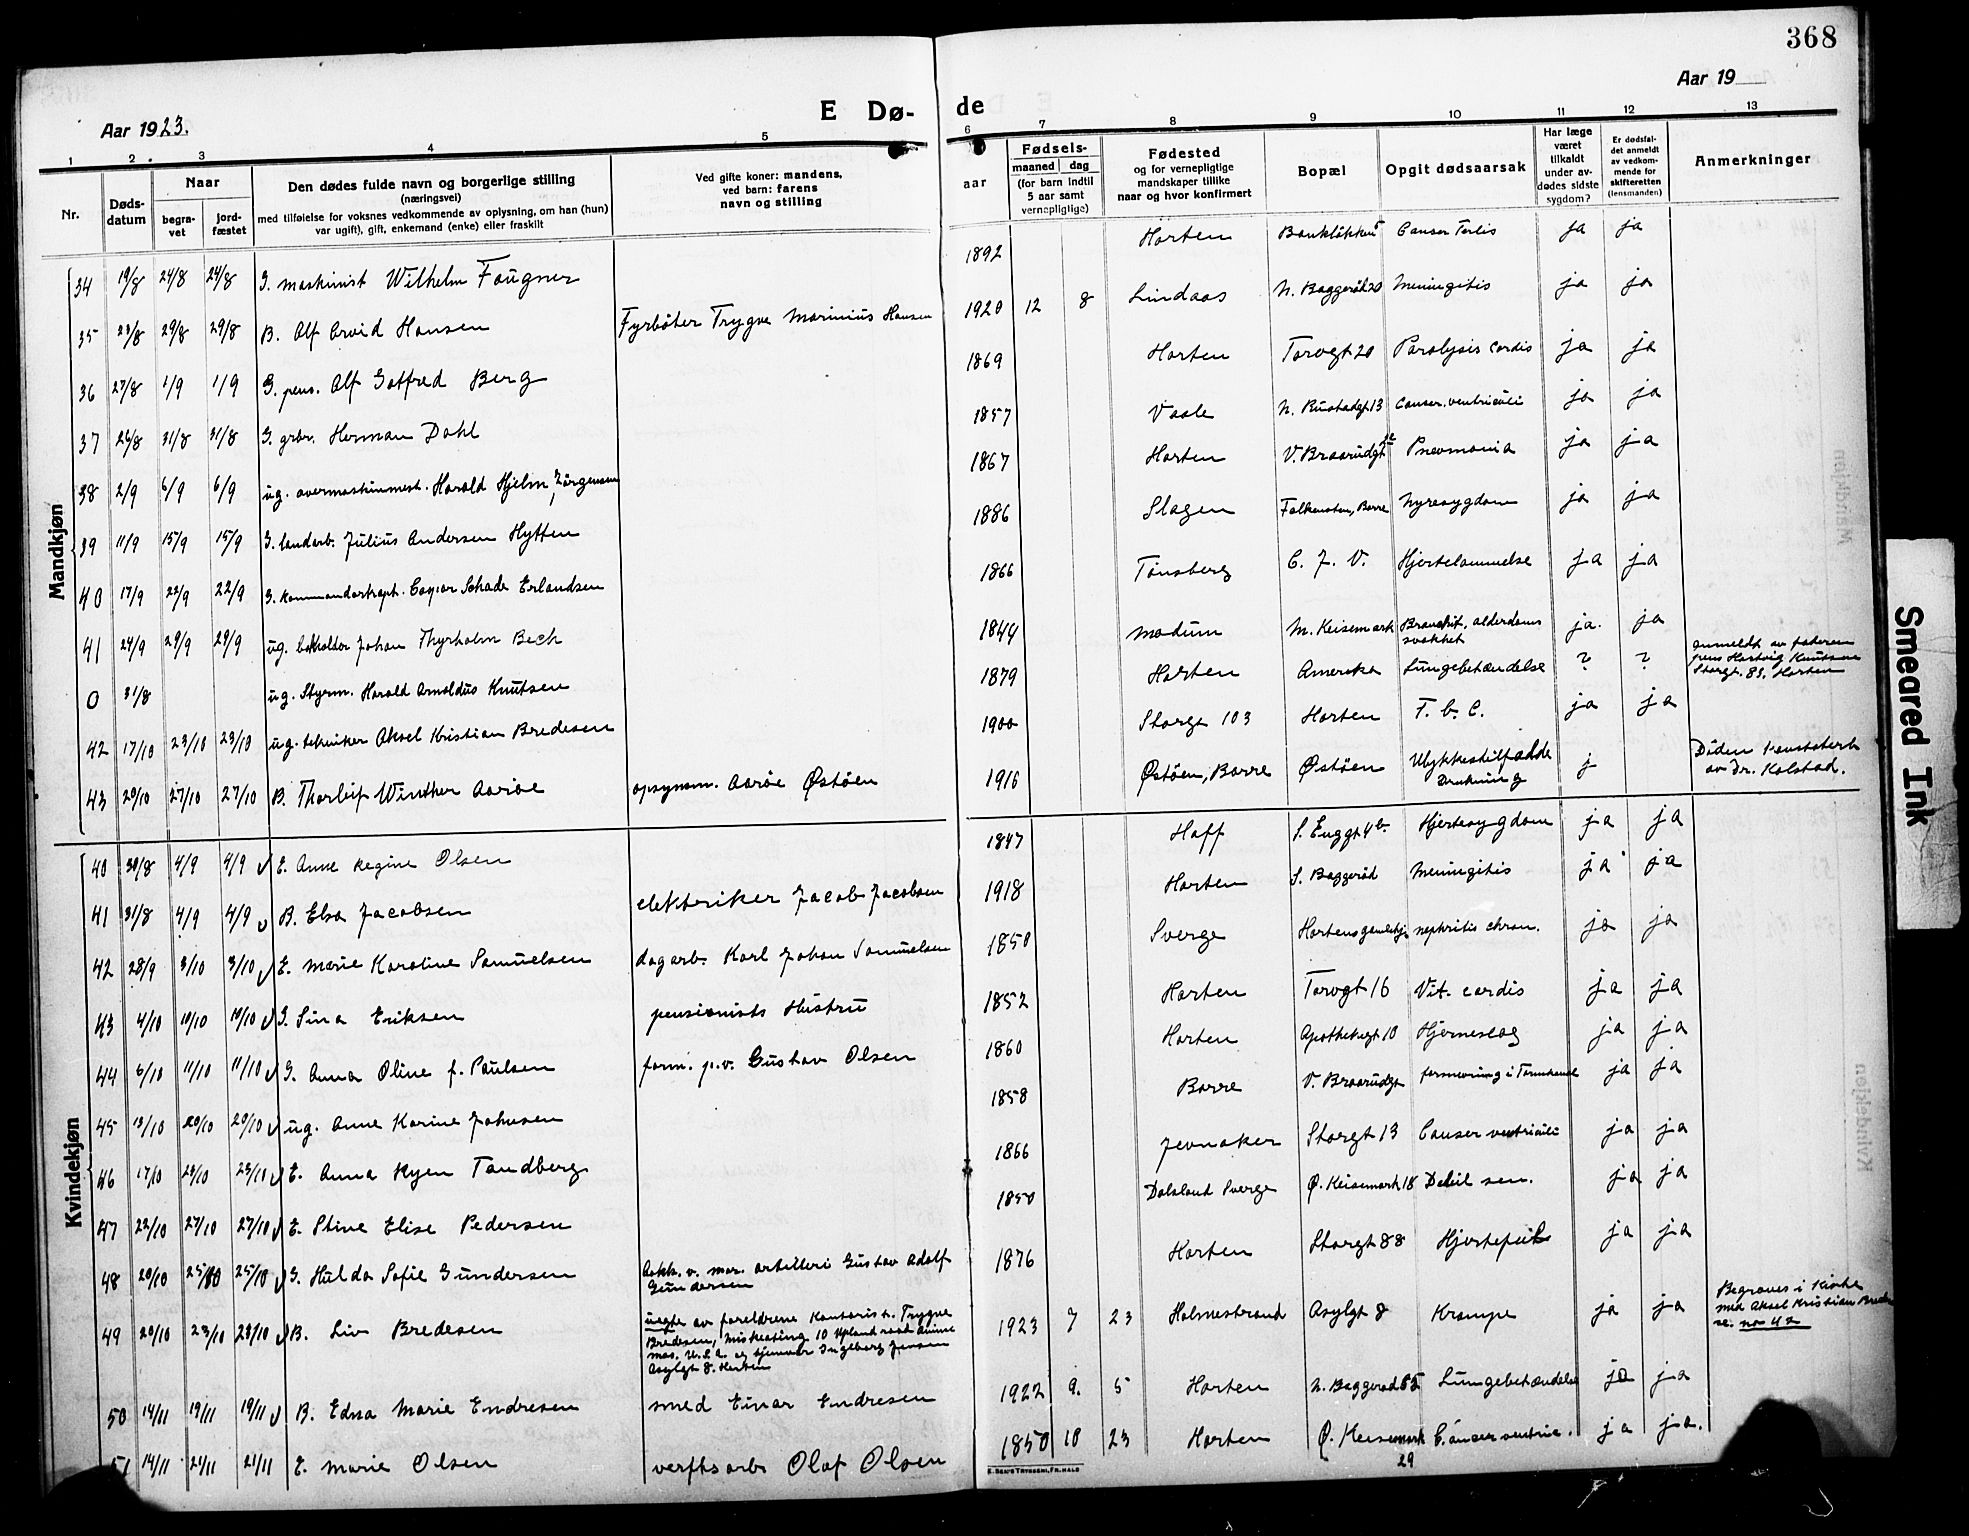 368
Aar 1923. E Dø- de Aar 19
1 2 3 4 5 6 7 8 9 10 11 12 13
Nr. Døds-datum Naar begra-vet jord-fæstet Den dødes fulde navn og borgerlige stilling (næringsvei) med tilføielse for voksnes vedkommende av oplysning, om han (hun) var ugift), gift, enkemand (enke) eller fraskilt Ved gifte koner: mandens, ved barn: farens navn og stilling aar Fødsels- maaned dag (for barn indtil 5 aar samt vernepligtige) Fødested og for vernepligtige mandskaper tillike naar og hvor konfirmert Bopæl Opgit dødsaarsak Har læge været tilkaldt under av-dødes sidste sygdom? Er dødsfal-det anmeldt av vedkom-mende for skifteretten (lensmanden) Anmerkninger
Mandkjøn
34 19/8 24/8 24/8 G. maskinist Wilhelm Fougner 1892 Horten ja ja
35 23/8 29/8 29/8 B. Alf Arvid Hansen Fyrbøter Trygve Marinius Hansen 1920 12 8 Lindaas N. Baggerødt 20 Meningitis ja ja
36 27/8 1/9 1/9 G. pens. Alf Gotfred Berg 1869 Horten Torvgt 20 Paralysis cordis ja ja
37 26/8 31/8 31/8 G. grbr. Herman Dahl 1857 Vaale N. Bustadgt 13 Canser. ventriculi ja ja
38 2/9 6/9 6/9 ug. overmaskinmest. Harald Hjelm Jørgensen 1867 Horten V. Braarudgt Pneumonia ja ja
39 11/9 15/9 15/9 G. landarb. Julius Andersen Hytten 1886 Slagen Falkensten, Borre Nyresygdom ja ja
40 17/9 22/9 22/9 G. kommandørkapt. Caspar Schade Erlandsen 1866 Tønsberg C. J. V. Hjertelammelse ja ja
41 24/9 29/9 29/9 ug. bokholder Johan Thyrholm Bech 1844 Modum M. Keisemark Bronchit, alderdoms svakhet ja. ja
0 31/8 ug. Styrm. Harald Arnoldus Knutsen 1879 Horten Amerika Lungebetændelse ? ? Anmeldt av faderen pens Hartvig Knutsen Storgt. 83. Horten
42 17/10 23/10 23/10 ug. tekniker Aksel Kristian Bredesen 1900 Storgt 103 Horten T. b. C. ja ja
43 20/10 27/10 27/10 B. Thorleif Winther Aarøe opsynsm. Aarøe Østøen 1916 Østøen, Borre Østøen Ulykkestilfælde Drukning j Døden konstatert av Dr. Kolstad.
Kvindekjøn
40 30/8 4/9 4/9 E. Anne Regine Olsen 1847 Hoff S. Enggt 4b. Hjertesygdom ja ja
41 31/8 4/9 4/9 B. Elsa Jacobsen elektriker Jacob Jacobsen 1918 Horten S. Baggerød Meningitis ja ja
42 28/9 3/10 3/10 E. Marie Karoline Samuelsen dagarb. Karl Johan Samuelsen 1850 Sverge Hortens gamlehj. nephritis chron. ja ja
43 4/10 10/10 10/10 G. Sina Eriksen pensionists Hustru 1852 Horten Torvgt 16 Vit. cordis ja ja
44 6/10 11/10 11/10 G. Anna Oline f. Paulsen form. p.v. Gustav Olsen 1860 Horten Apothekergt 10 Hjerneslag ja ja
45 13/10 20/10 20/10 ug. Anne Karine Johnsen 1858 Borre V. Braarudgt Forsnevring i Tarmkanal ja ja
46 17/10 23/10 23/10 E. Anna Kyen Tandberg 1866 Jevnaker Storgt 13 Canser ventriculi ja ja
47 22/10 27/10 27/10 E. Stine Elise Pedersen 1850 Dalsland Sverge Ø. Keisemark 18 Debil sen. ja ja
48 20/10 25/10 25/10 G. Hulda Sofie Gundersen v. mar. artilleri Gustav Adolf Gundersen 1876 Horten Storgt 88 Hjertefeil ja ja
49 20/10 23/10 23/10 B. Liv Bredesen uegte av foreldrene Kontorist. Trygve Bredesen, 10 Upland road mas. U.S.A. og Ingeborg Jensen Asylgt 8. Horten 1923 7 23 Holmestrand Asylgt 8 Krampe ja ja Begraves i Kiste med Aksel Kristian Brede se. no 42
50 14/11 19/11 19/11 B. Edna Marie Endresen smed Einar Endresen 1922 9. 5 Horten N. Baggerød 85 Lungebetændelse ja ja
51 14/11 21/11 21/11 E. Marie Olsen verftsarb Olaf Olsen 1850 10 23 Horten Ø. Keisemark 29 Canser ventric. ja ja.
Smeared Ink